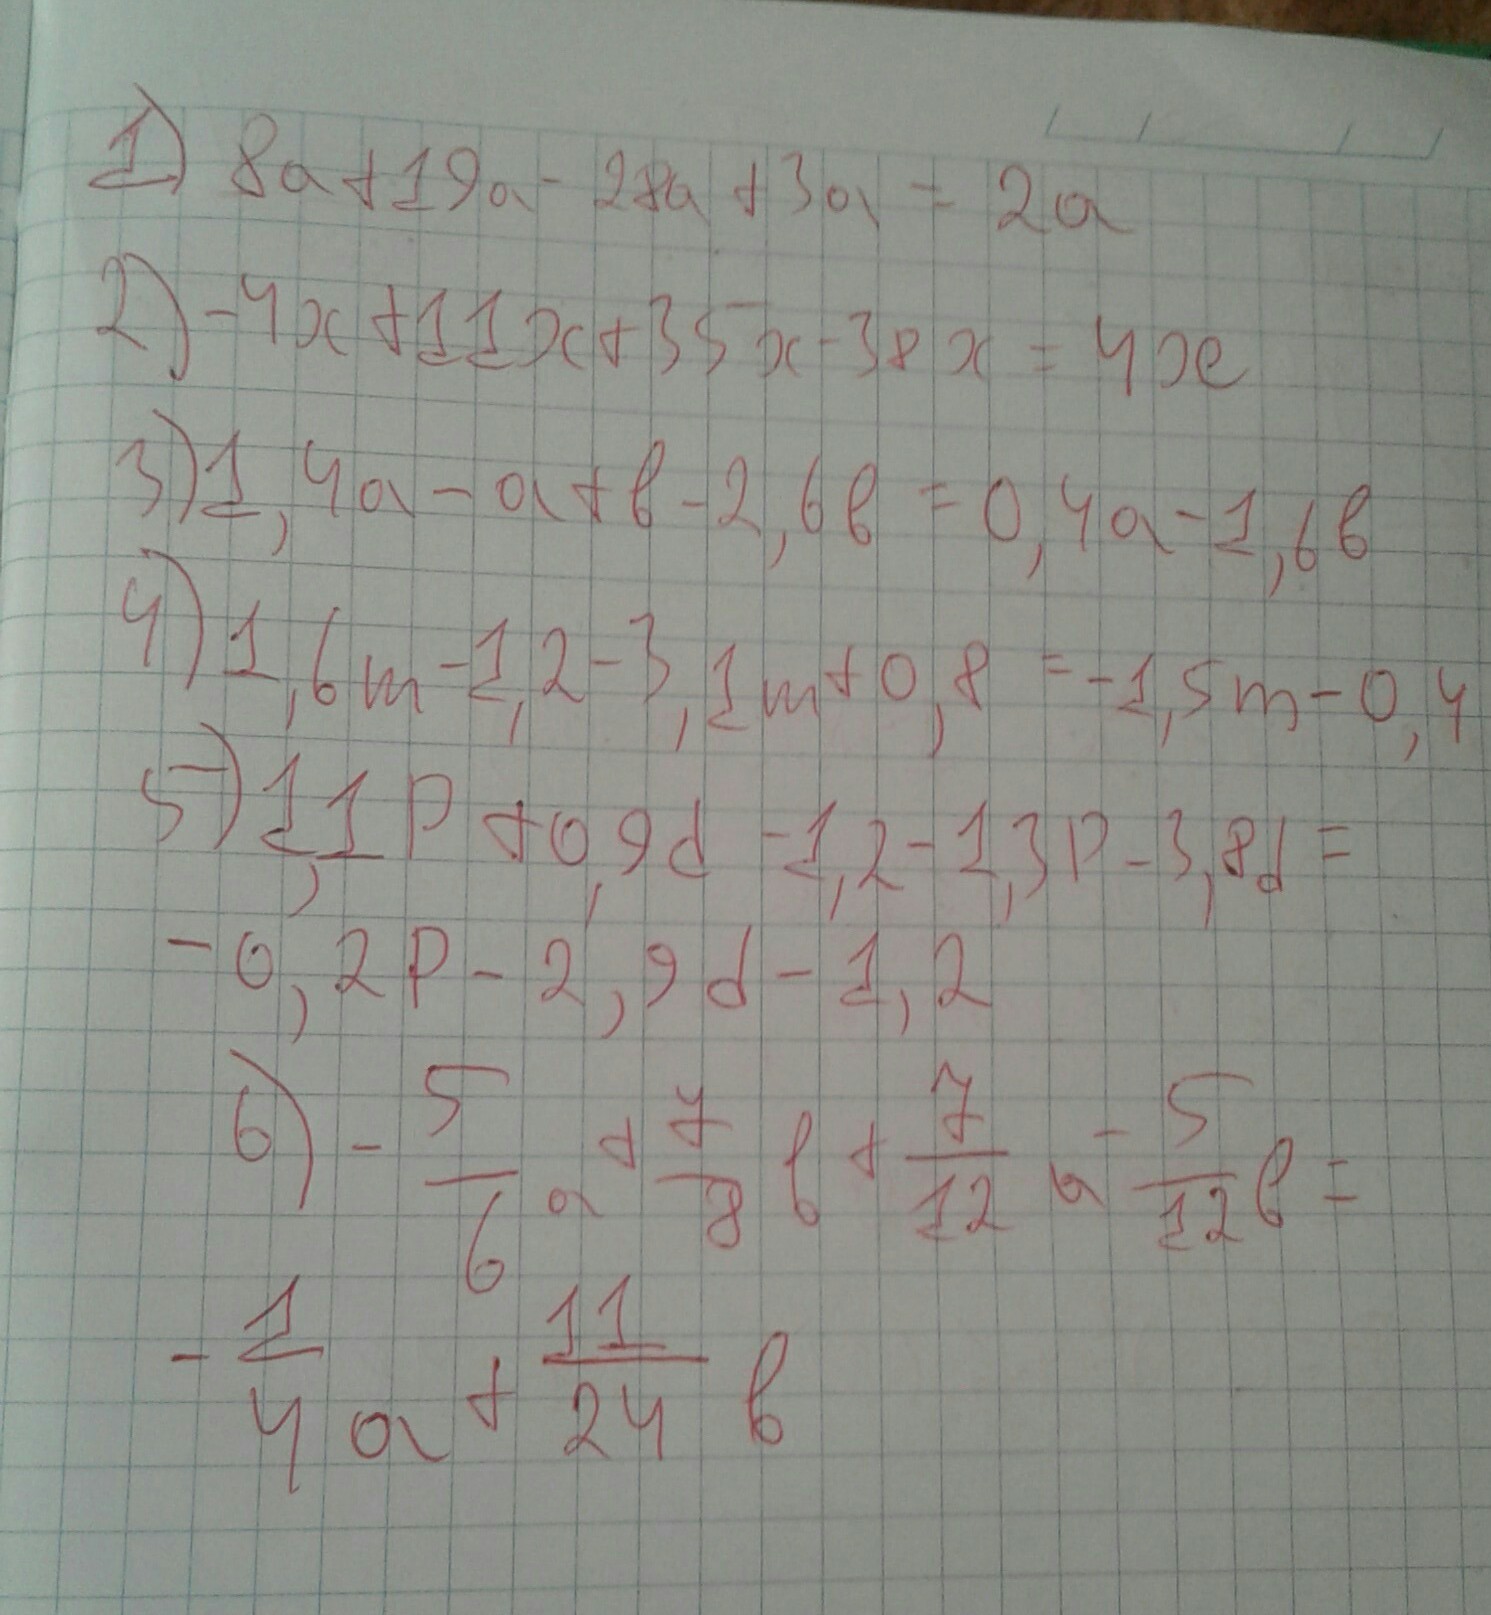 1) 8a+19a-28a+3a=2a
2) -4x+11x+35x-38x=4x
3) 1,4a-a+b-2,6b=0,4a-1,6b
4) 1,6m-1,2-3,1m+0,8=-1,5m-0,4
5) 1,1p+0,9d-1,2-1,3p-3,8d=
-0,2p-2,9d-1,2
6) -5/6 a+7/8 b+7/12 a-5/12 b=
-1/4 a+11/24 b